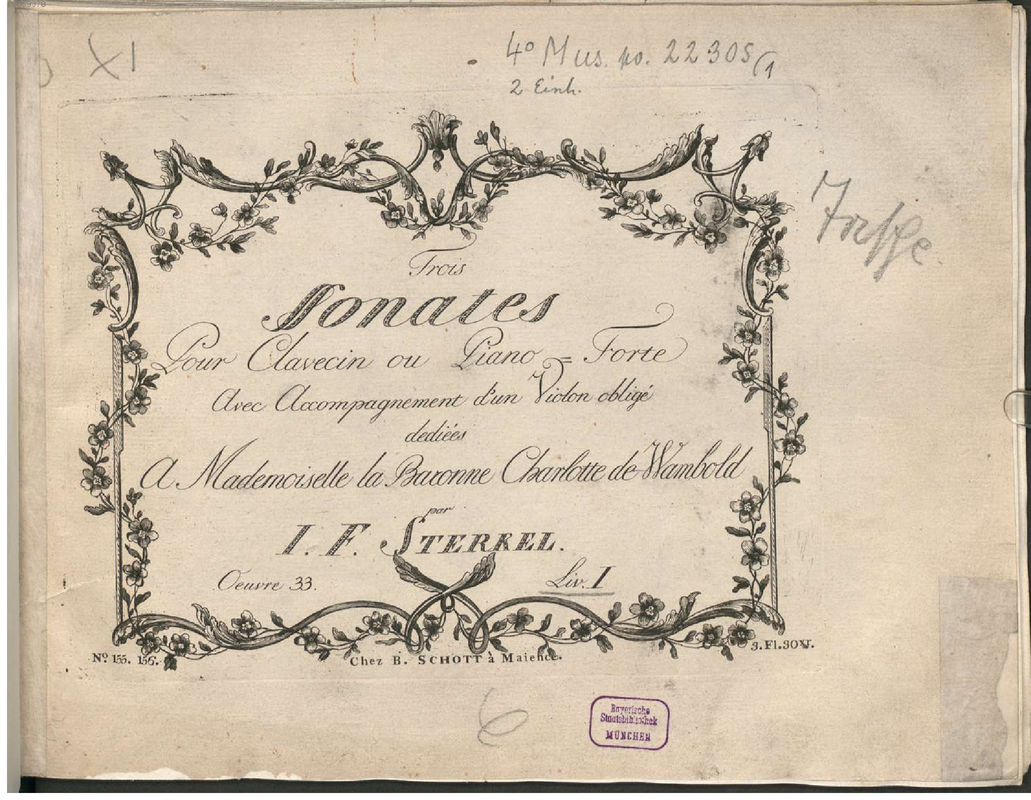 XI
4° Mus. po. 22305/1
2 Einh.
Trois
Sonates
Pour Clavecin ou Piano = Forte
Avec Accompagnement d'un Violon obligé
dediées
A Mademoiselle la Baronne Charlotte de Wambold
par
I. F. STERKEL.
Oeuvre 33. Liv. I
Nº. 155. 156. Chez B. SCHOTT à Maience. 3. Fl. 30 Xr.
Bayerische
Staatsbibliothek
MÜNCHEN